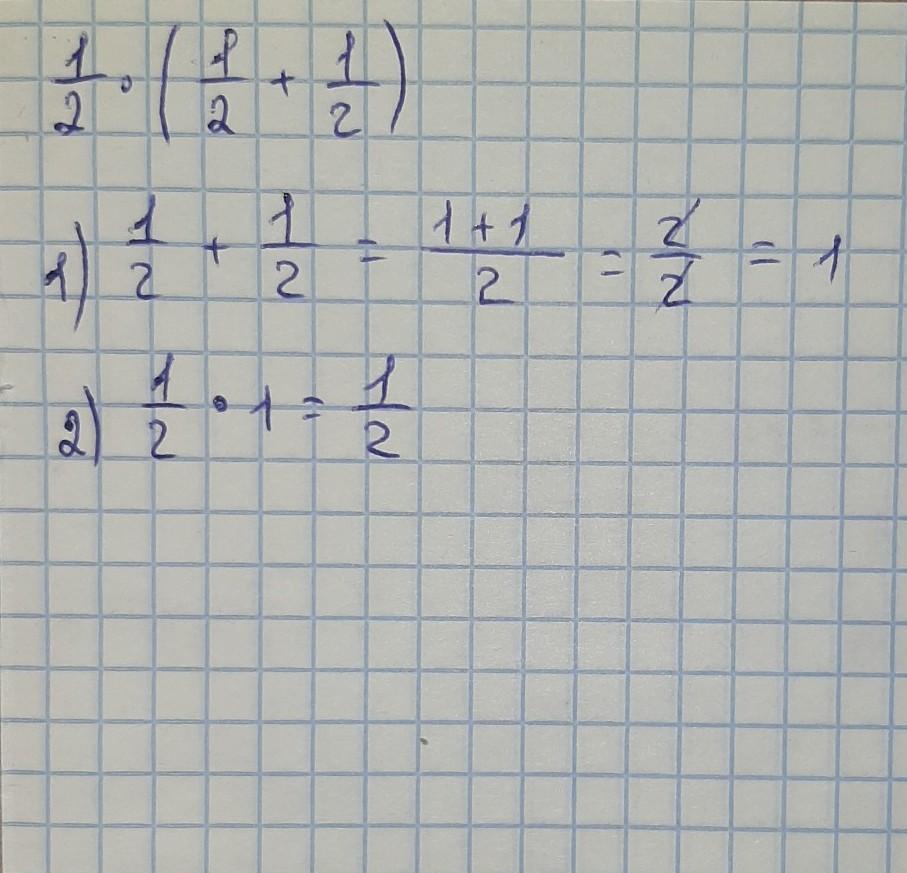 1/2 · (1/2 + 1/2)
1) 1/2 + 1/2 = (1+1)/2 = 2/2 = 1
2) 1/2 · 1 = 1/2